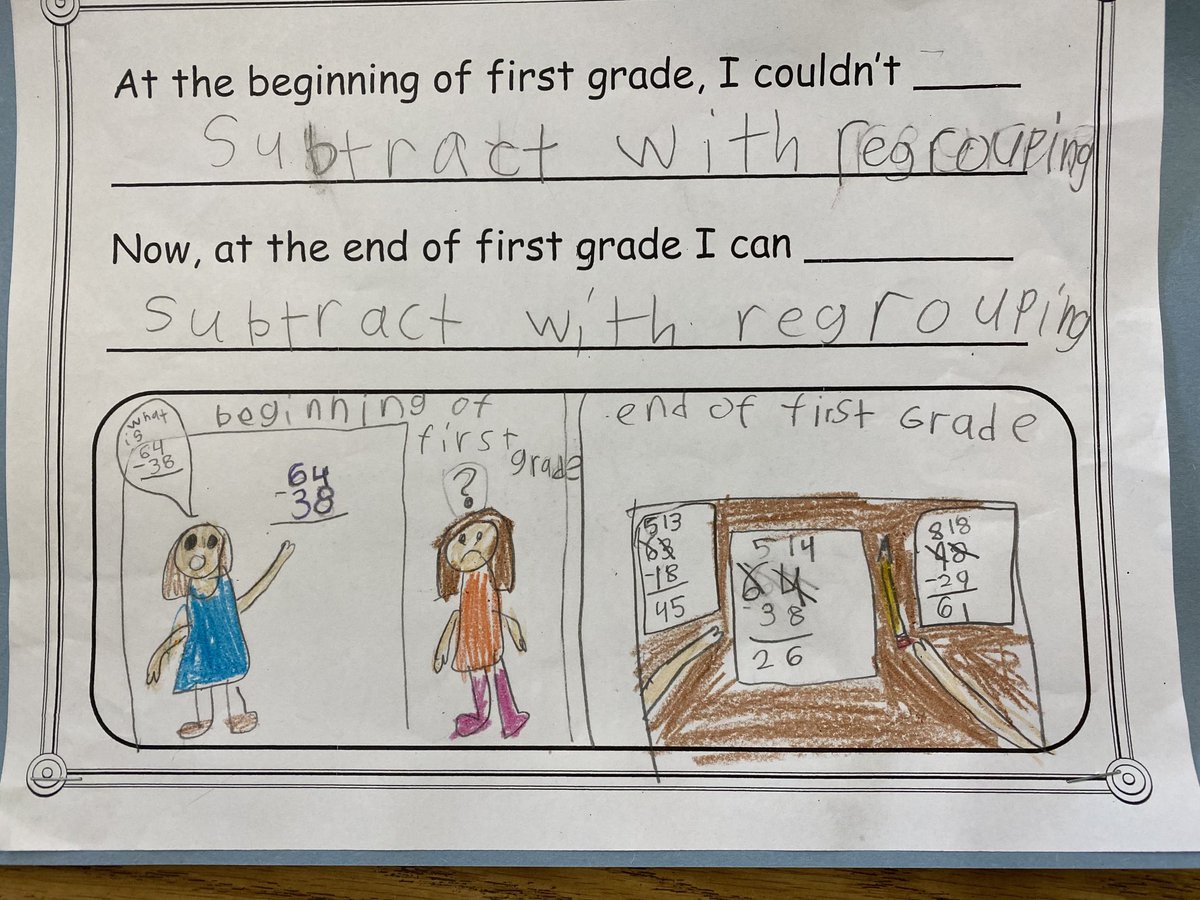 At the beginning of first grade, I couldn't
Subtract with regrouping
Now, at the end of first grade I can
subtract with regrouping
beginning of
first
grade
what
is
64
-38
64
-38
?
end of first Grade
5 13
63
-18
45
5 14
6 4
-3 8
2 6
8 18
-29
61